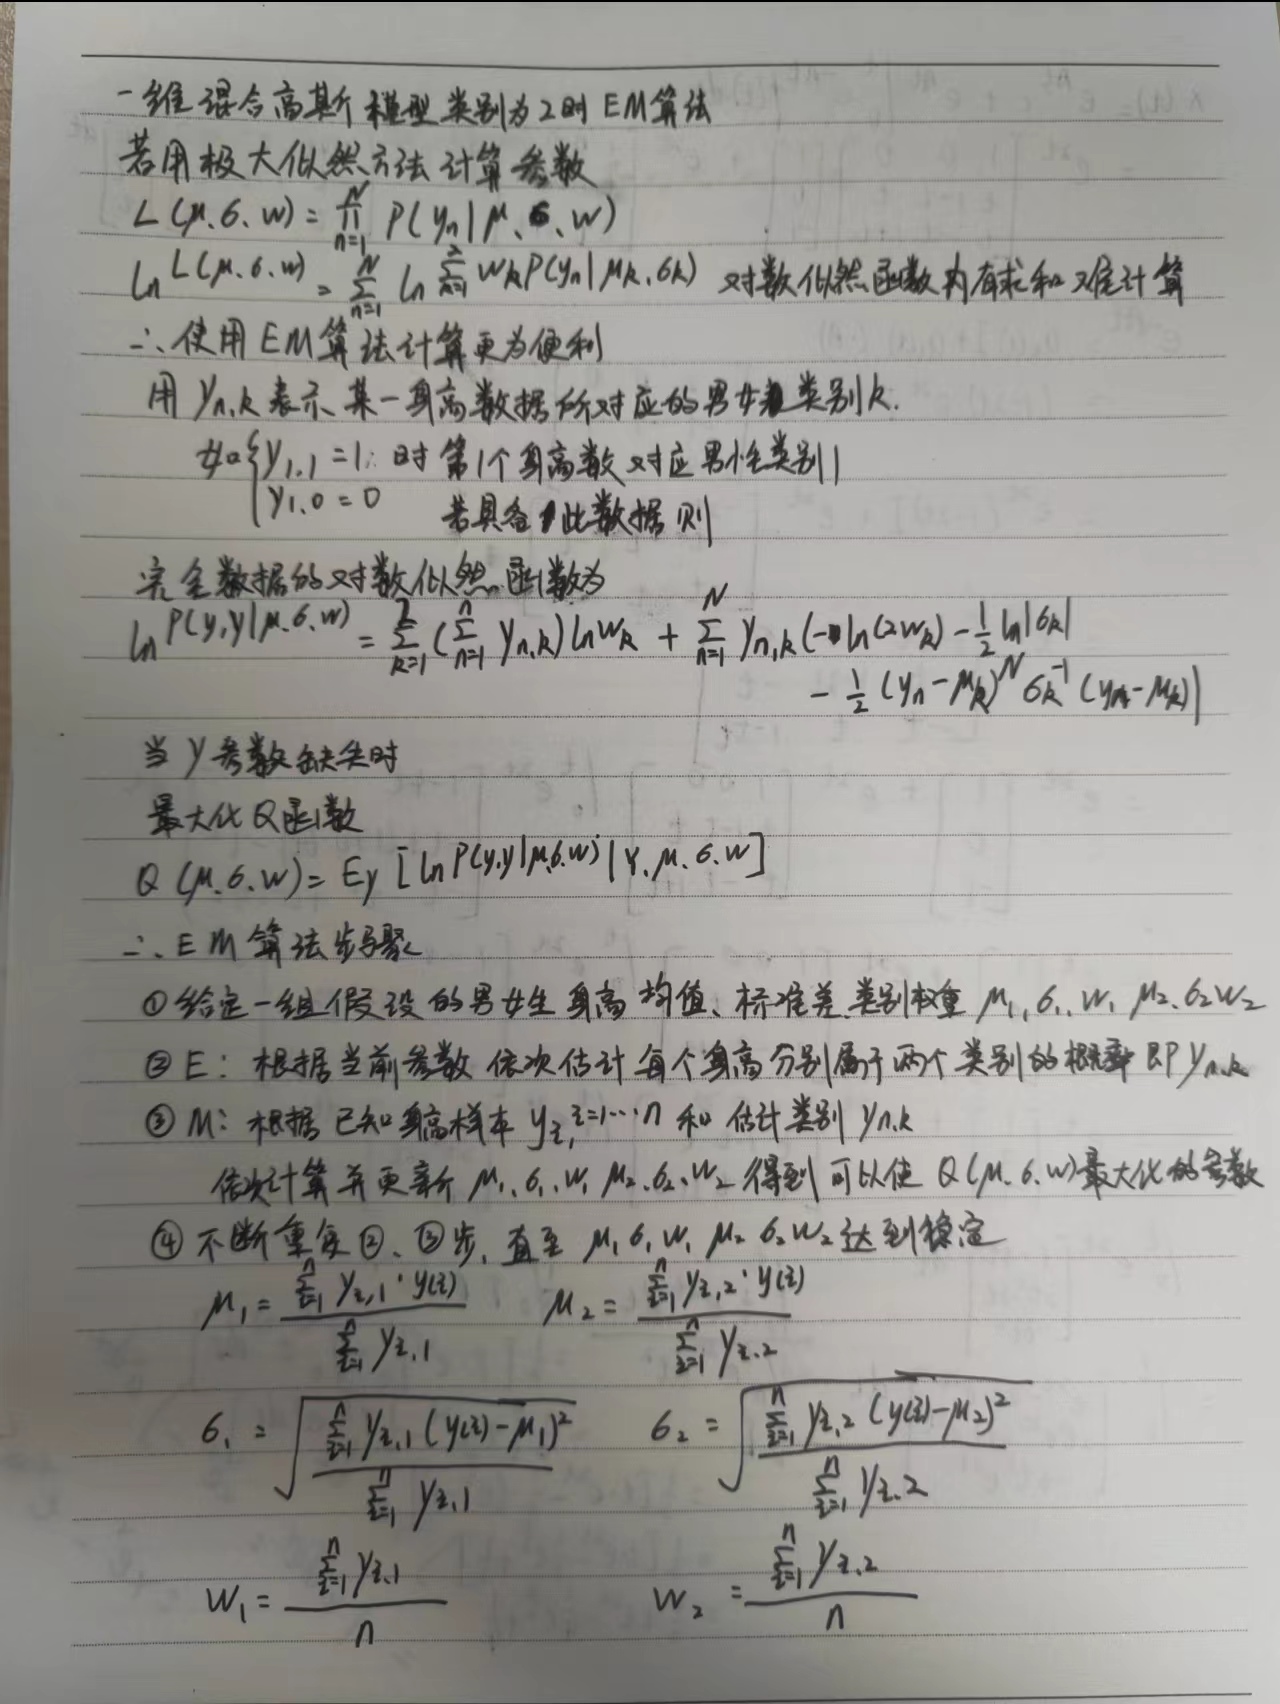 一维混合高斯模型类别为2时EM算法
若用极大似然方法计算参数
L(μ.σ.w) = ∏_{n=1}^{N} P(y_n|μ.σ.w)
ln L(μ.σ.w) = ∑_{n=1}^{N} ln ∑_{k=1}^{2} w_k P(y_n|μ_k.σ_k) 对数似然函数内有求和 难计算
∴使用EM算法计算更为便利
用 γ_{n,k} 表示某一身高数据所对应的男女类别k.
如{γ_{1,1} = 1 时 第1个身高数对应男性类别1
γ_{1,0} = 0 若具备此数据则
完全数据的对数似然函数为
ln P(y,γ|μ.σ.w) = ∑_{k=1}^{2} (∑_{n=1}^{n} γ_{n,k}) ln w_k + ∑_{n=1}^{N} γ_{n,k} (-ln(2w_k) - 1/2 ln|σ_k|
- 1/2 (y_n - μ_k)^N σ_k^{-1} (y_n - μ_k)|
当γ参数缺失时
最大化Q函数
Q(μ.σ.w) = E_γ [ln P(y,γ|μ.σ.w) | Y.μ.σ.w]
∴EM算法步骤
①给定一组假设的男女生身高均值、标准差.类别权重 μ_1,σ_1,w_1 μ_2.σ_2 w_2
②E: 根据当前参数 依次估计每个身高分别属于两个类别的概率 即P γ_{n,k}
③M: 根据已知身高样本 y_i, i=1…n 和估计类别 γ_{n,k}
依次计算并更新 μ_1.σ_1.w_1 μ_2.σ_2.w_2 得到可以使 Q(μ.σ.w)最大化的参数
④不断重复②、③步,直至 μ_1 σ_1 w_1 μ_2 σ_2 w_2 达到稳定
μ_1 = ∑_{i=1}^{n} γ_{i,1}·y(i) / ∑_{i=1}^{n} γ_{i,1} μ_2 = ∑_{i=1}^{n} γ_{i,2}·y(i) / ∑_{i=1}^{n} γ_{i,2}
σ_1 = √(∑_{i=1}^{n} γ_{i,1}(y(i)-μ_1)² / ∑_{i=1}^{n} γ_{i,1}) σ_2 = √(∑_{i=1}^{n} γ_{i,2}(y(i)-μ_2)² / ∑_{i=1}^{n} γ_{i,2})
w_1 = ∑_{i=1}^{n} γ_{i,1} / n w_2 = ∑_{i=1}^{n} γ_{i,2} / n